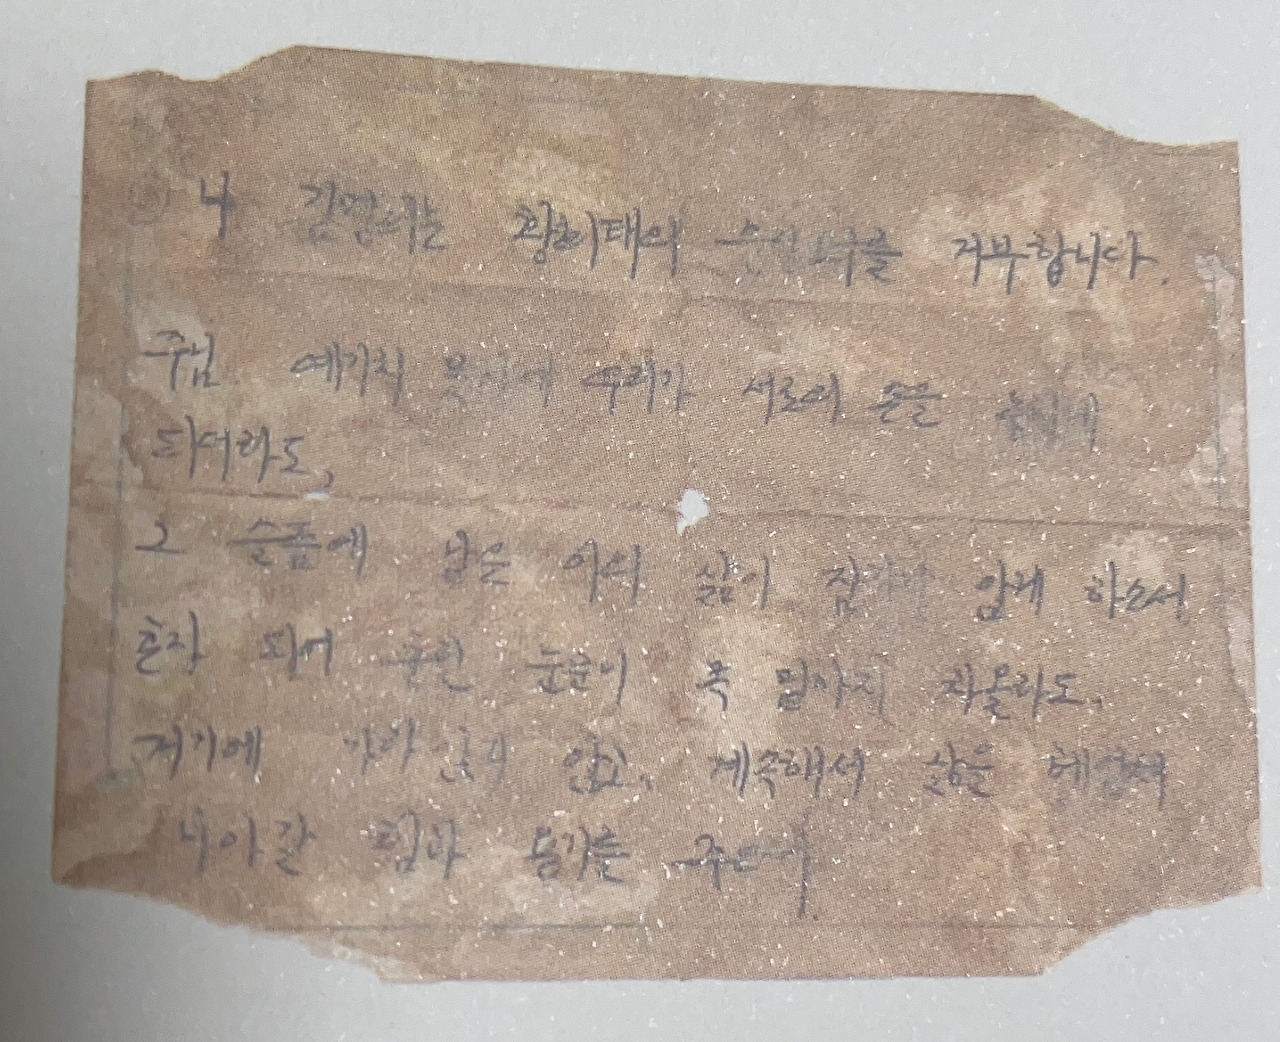 나 김명희는 황희태의 수혈 요구를 거부합니다.
주님. 예기치 못하게 우리가 서로의 손을 놓치게
되더라도,
그 슬픔에 남은 이의 삶이 잠기지 않게 하소서
혼자 되어 흘린 눈물이 목 밑까지 차올라도,
거기에 가라앉지 않고, 계속해서 삶을 헤엄쳐
나아갈 힘과 용기를 주소서.